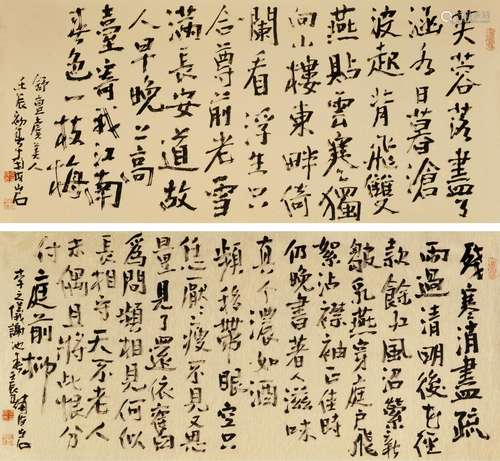 芙蓉落盡天
涵水日暮滄
波起背飛雙
燕貼雲寒獨
向小樓東畔倚
闌看浮生只
合尊前老雪
滿長安道故
人早晚上高
臺寄我江南
春色一枝梅
舒亶虞美人
壬辰初春
殘寒消盡疏
雨過清明後花徑
款餘紅風沼縈新
皺乳燕穿庭戶飛
絮沾襟袖正佳時
仍晚晝著人滋味
真个濃如酒
頻移帶眼空只
恁厭厭瘦不見又思
量見了還依舊
為問頻相見何似
長相守天不老人
未偶且將此恨分
付庭前柳
李之儀謝池春壬辰